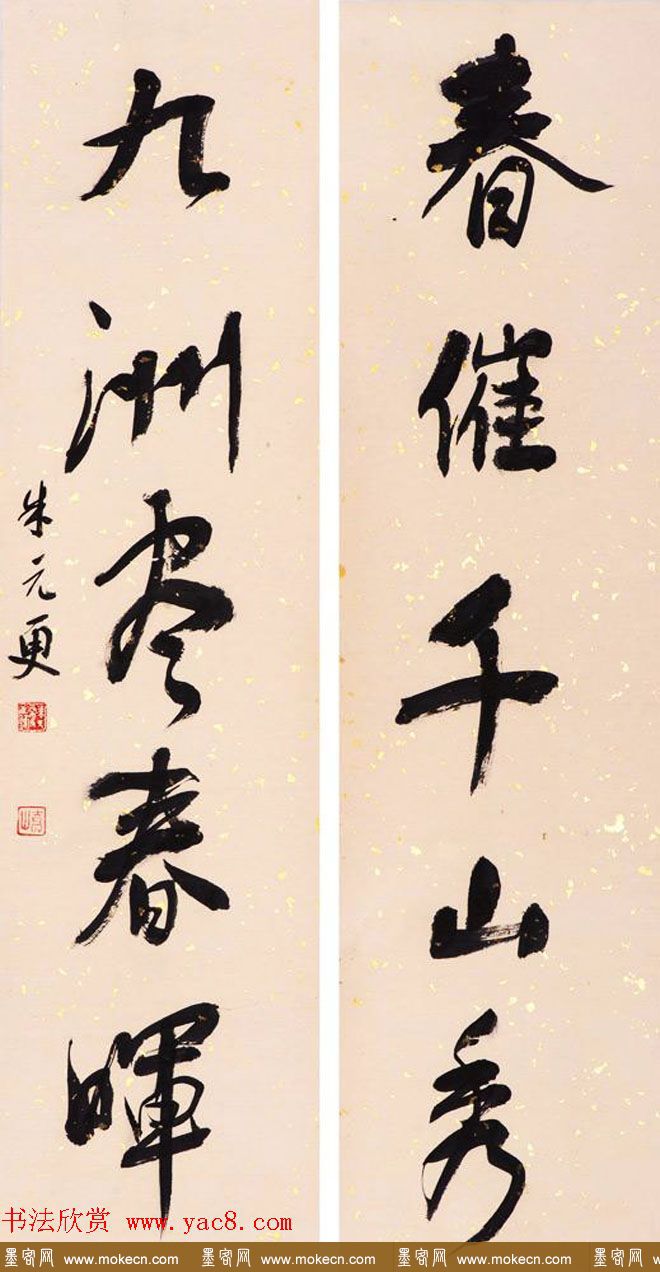 春催千山秀
九洲尽春晖
朱元更
书法欣赏 www.yac8.com
墨客网 www.mokecn.com 墨客网 www.mokecn.com 墨客网 www.mokecn.com 墨客网 www